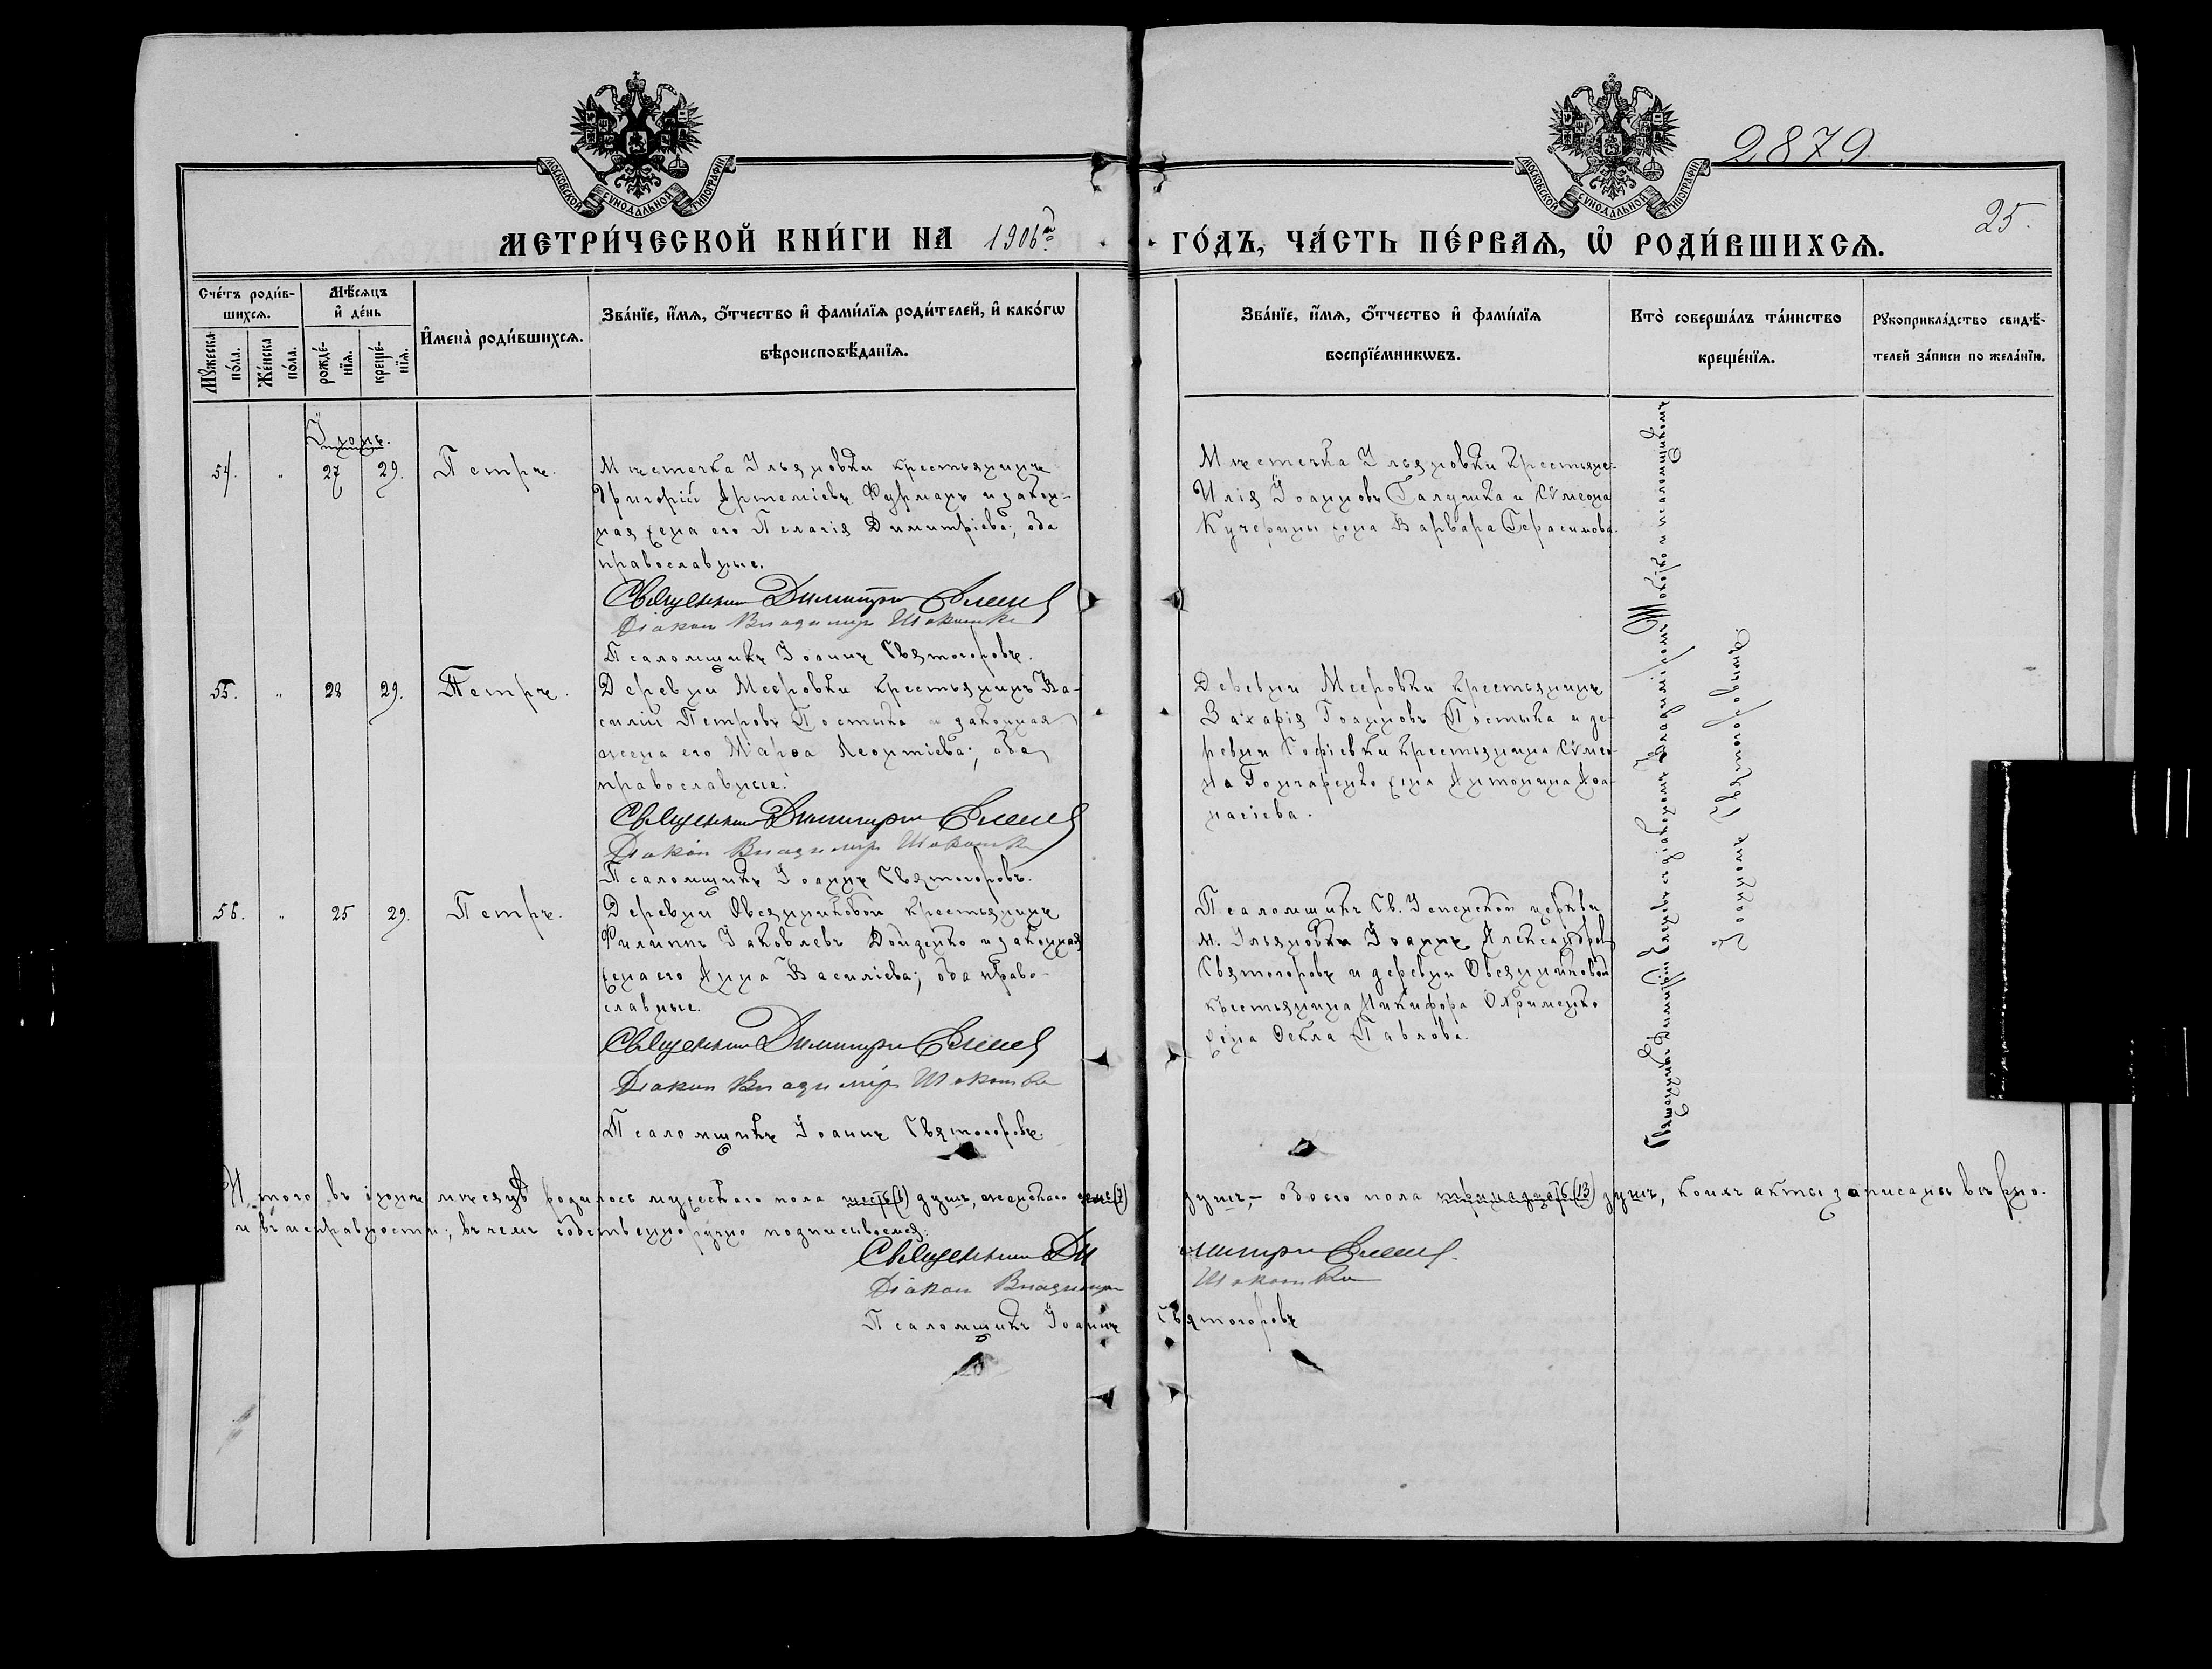 2879
25.
МОСКОВСКОЙ СѴНОДАЛЬНОЙ ТИПОГРАФІИ
МОСКОВСКОЙ СѴНОДАЛЬНОЙ ТИПОГРАФІИ
МЕТРИ́ЧЕСКОЙ КНИ́ГИ НА 1906й
ГО́ДЪ, ЧА́СТЬ ПЕ́РВАѦ, Ѡ҆ РОДИ́ВШИХСѦ.
Сче́тъ роди́в-
шихсѧ.
Мꙋ́жеска по́ла.
Же́нска по́ла.
Мѣ́сѧцъ
и҆ де́нь
рожде́-
нїѧ.
креще́-
нїѧ.
И҆мена̀ роди́вшихсѧ.
Зва́нїе, и҆́мѧ, ѻ҆́тчество и҆ фами́лїѧ роди́телей, и҆ како́гѡ
вѣроисповѣ́данїѧ.
Зва́нїе, и҆́мѧ, ѻ҆́тчество и҆ фами́лїѧ
воспрїе́мникѡвъ.
Кто̀ соверша́лъ та́инство
креще́нїѧ.
Рꙋкоприкла́дство свидѣ́-
телей за́писи по жела́нїю.
Іюнь.
54. " 27 29. Петръ.
Мѣстечка Ульяновки крестьянинъ
Григорій Артеміевъ Фурманъ и закон-
ная жена его Пелагія Димитріева; оба
православные.
Священникъ Димитрій Еленев
Діаконъ Владиміръ Шокотко
Псаломщикъ Іоаннъ Святогоровъ.
Мѣстечка Ульяновки крестьяне
Илія Іоанновъ Галушка и Сѵмеона
Кучерины жена Варвара Герасимова.
55. " 28 29. Петръ.
Деревни Мееровки крестьянинъ Ва-
силій Петровъ Постыка и законная
жена его Марѳа Леонтіева; оба
православные.
Священникъ Димитрій Еленев
Діаконъ Владиміръ Шокотко
Псаломщикъ Іоаннъ Святогоровъ.
Деревни Мееровки крестьянинъ
Захарія Іоанновъ Постыка и де-
ревни Софіевки крестьянина Сѵмео-
на Гончаренко жена Антонина Аѳа-
насіева.
56. " 25 29. Петръ.
Деревни Овсянниковой крестьянинъ
Филиппъ Іаковлевъ Дойденко и законная
жена его Анна Василіева; оба право-
славные.
Священникъ Димитрій Еленев
Діаконъ Владиміръ Шокотко
Псаломщикъ Іоаннъ Святогоровъ.
Псаломщикъ Св. Успенской церкви
м. Ульяновки Іоаннъ Александровъ
Святогоровъ и деревни Овсянниковой
крестьянина Никифора Охрименко
жена Ѳекла Павлова.
Священникъ Димитрій Еленевъ съ діакономъ Владиміромъ Шокотко и псаломщикомъ
Іоанномъ Святогоровымъ.
Итого въ іюнѣ мѣсяцѣ родилось мужескаго пола шесть (6) душъ, женскаго семь (7) душъ, – обоего пола тринадцать (13) душъ, коихъ акты записаны вѣрно
и въ исправности; въ чемъ собственноручно подписываемся:
Священникъ Димитрій Еленев.
Діаконъ Владиміръ Шокотко
Псаломщикъ Іоаннъ Святогоровъ